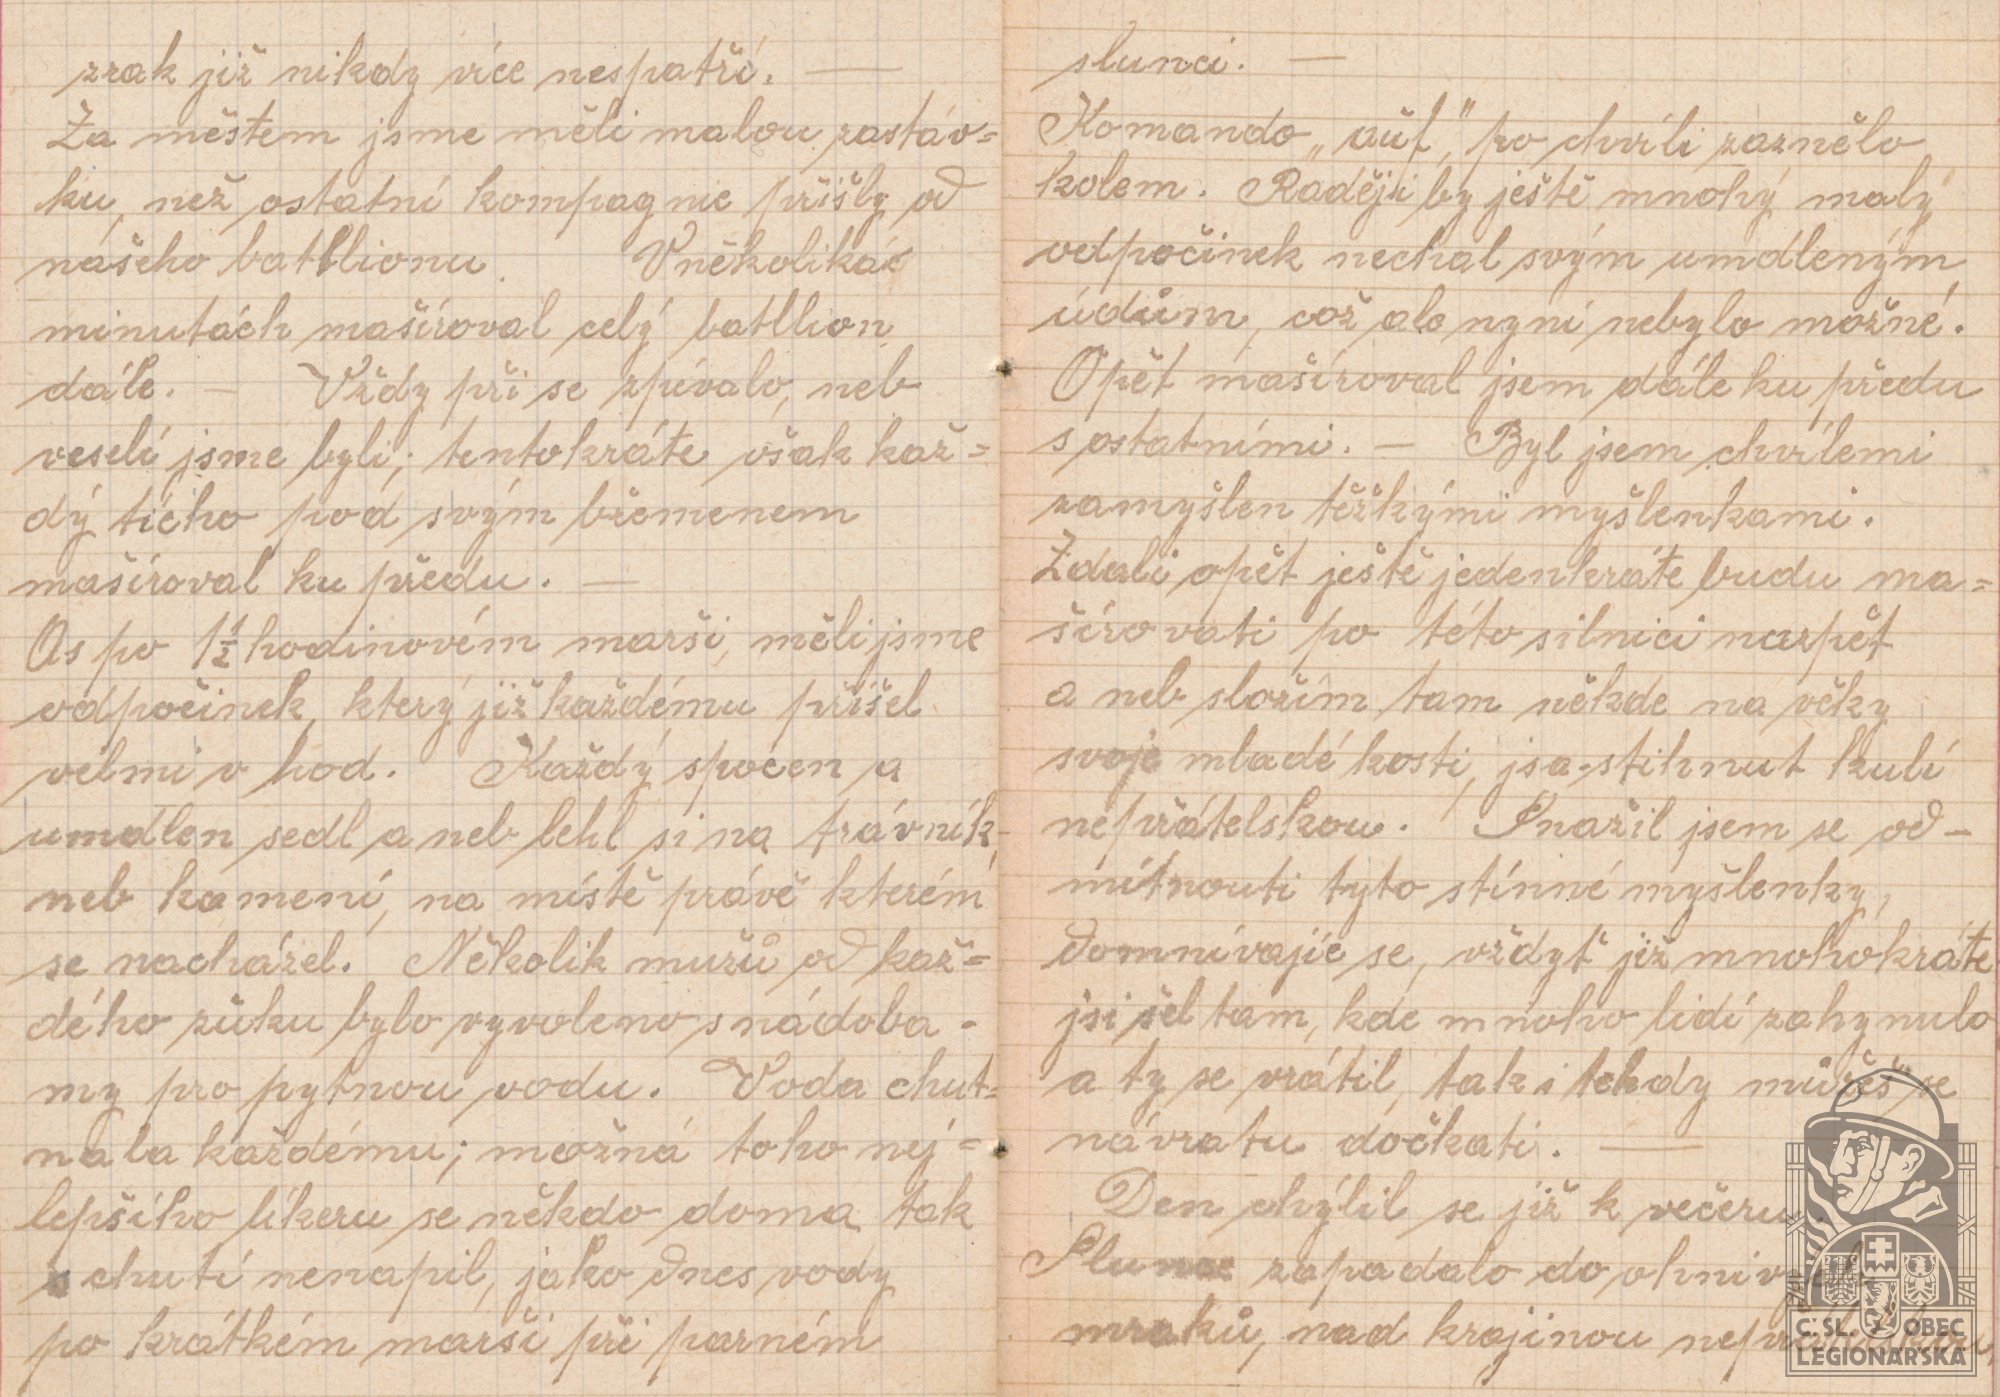 zrak již nikdy více nespatří. —
Za městem jsme měli malou zastáv=
ku, než ostatní kompagnie přišly od
našeho batllionu. V několikác
minutách mašíroval celý batllion
dále. — Vždy při se zpívalo, neb
veselí jsme byli; tentokráte však kaž=
dý ticho pod svým břemenem
mašíroval ku předu. —
As po 1½ hodinovém marši, měli jsme
odpočinek, který již každému přišel
velmi v hod. Každý spocen a
umdlen sedl a neb lehl si na trávník,
neb kamení, na místě právě kterém
se nacházel. Několik mužů od kaž=
dého zůku bylo vyvoleno s nádoba-
my pro pytnou vodu. Voda chut=
nala každému; možná toho nej=
lepšího likeru se někdo doma tak
s chutí nenapil, jako dnes vody
po krátkém marši při parném
slunci. —
Komando „auf," po chvíli zaznělo
kolem. Raději by ještě mnohý malý
odpočinek nechal svým umdleným
údům, což ale nyní nebylo možné.
Opět mašíroval jsem dále ku předu
s ostatními. — Byl jsem chvílemi
zamyšlen těžkými myšlenkami.
Zdali opět ještě jedenkráte budu ma=
šírovati po této silnici nazpět
a neb složím tam někde na věky
svoje mladé kosti, jsa stihnut kulí
nepřátelskou. Snažil jsem se od-
mítnouti tyto stinné myšlenky,
domnívajíc se, vždyť již mnohokráte
jsi šel tam, kde mnoho lidí zahynulo
a ty se vrátil, tak i tehdy můžeš se
návratu dočkati. —
Den chýlil se již k večeru.
Slunce zapadalo do ohnivých
mraků, nad krajinou
Č. SL. OBEC
LEGIONÁŘSKÁ